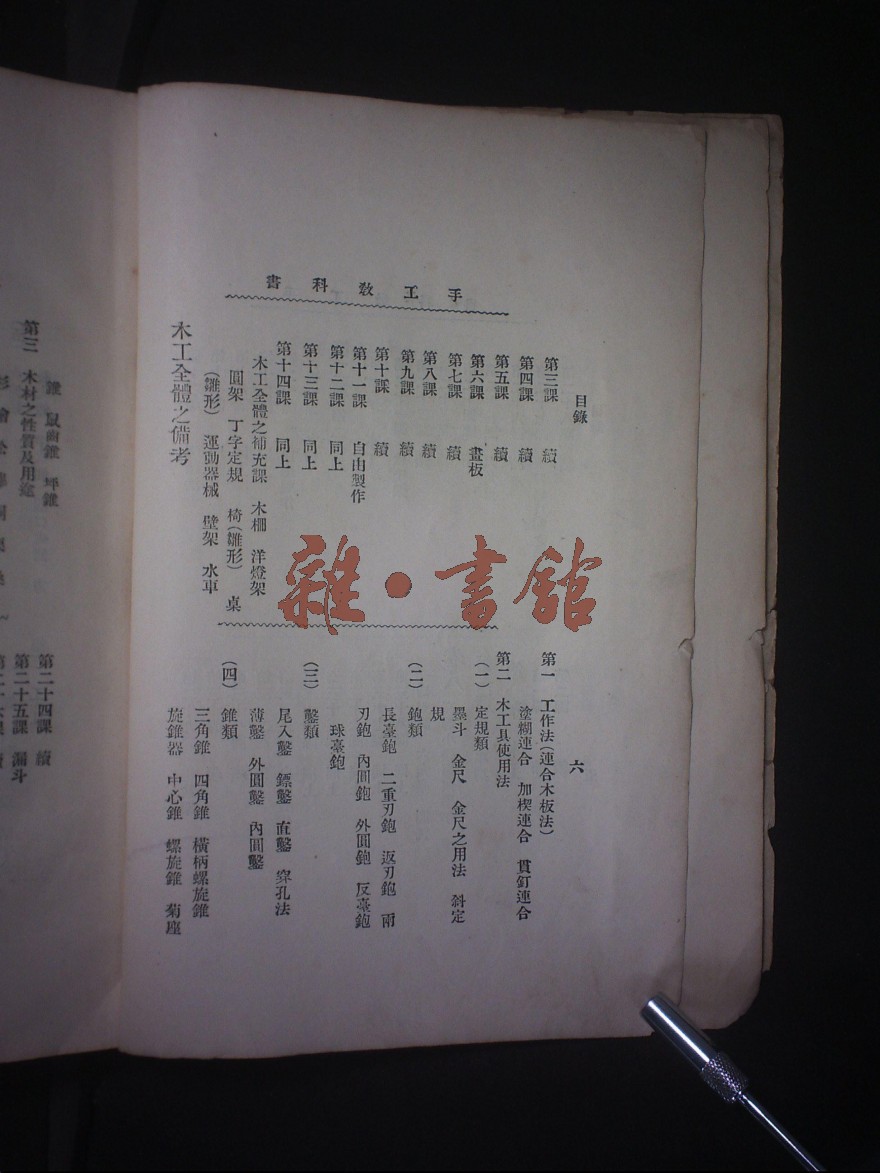 手工敎科書
目錄
六
第三課 續
第四課 續
第五課 續
第六課 畫板
第七課 續
第八課 續
第九課 續
第十課 續
第十一課 自由製作
第十二課 同上
第十三課 同上
第十四課 同上
木工全體之補充課 木柵 洋燈架
圓架 丁字定規 椅(雛形) 桌
(雛形) 運動器械 壁架 水車
木工全體之備考
第一 工作法(連合木板法)
塗糊連合 加楔連合 貫釘連合
第二 木工具使用法
(一) 定規類
墨斗 金尺 金尺之用法 斜定
規
(二) 鉋類
長臺鉋 二重刃鉋 返刃鉋 兩
刃鉋 內圓鉋 外圓鉋 反臺鉋
球臺鉋
(三) 鑿類
尾入鑿 鏢鑿 直鑿 穿孔法
薄鑿 外圓鑿 內圓鑿
(四) 錐類
三角錐 四角錐 橫柄螺旋錐
旋錐器 中心錐 螺旋錐 菊座
錐 鼠齒錐 坪錐
第三 木材之性質及用途
第二十四課 續
第二十五課 漏斗
雜·書館